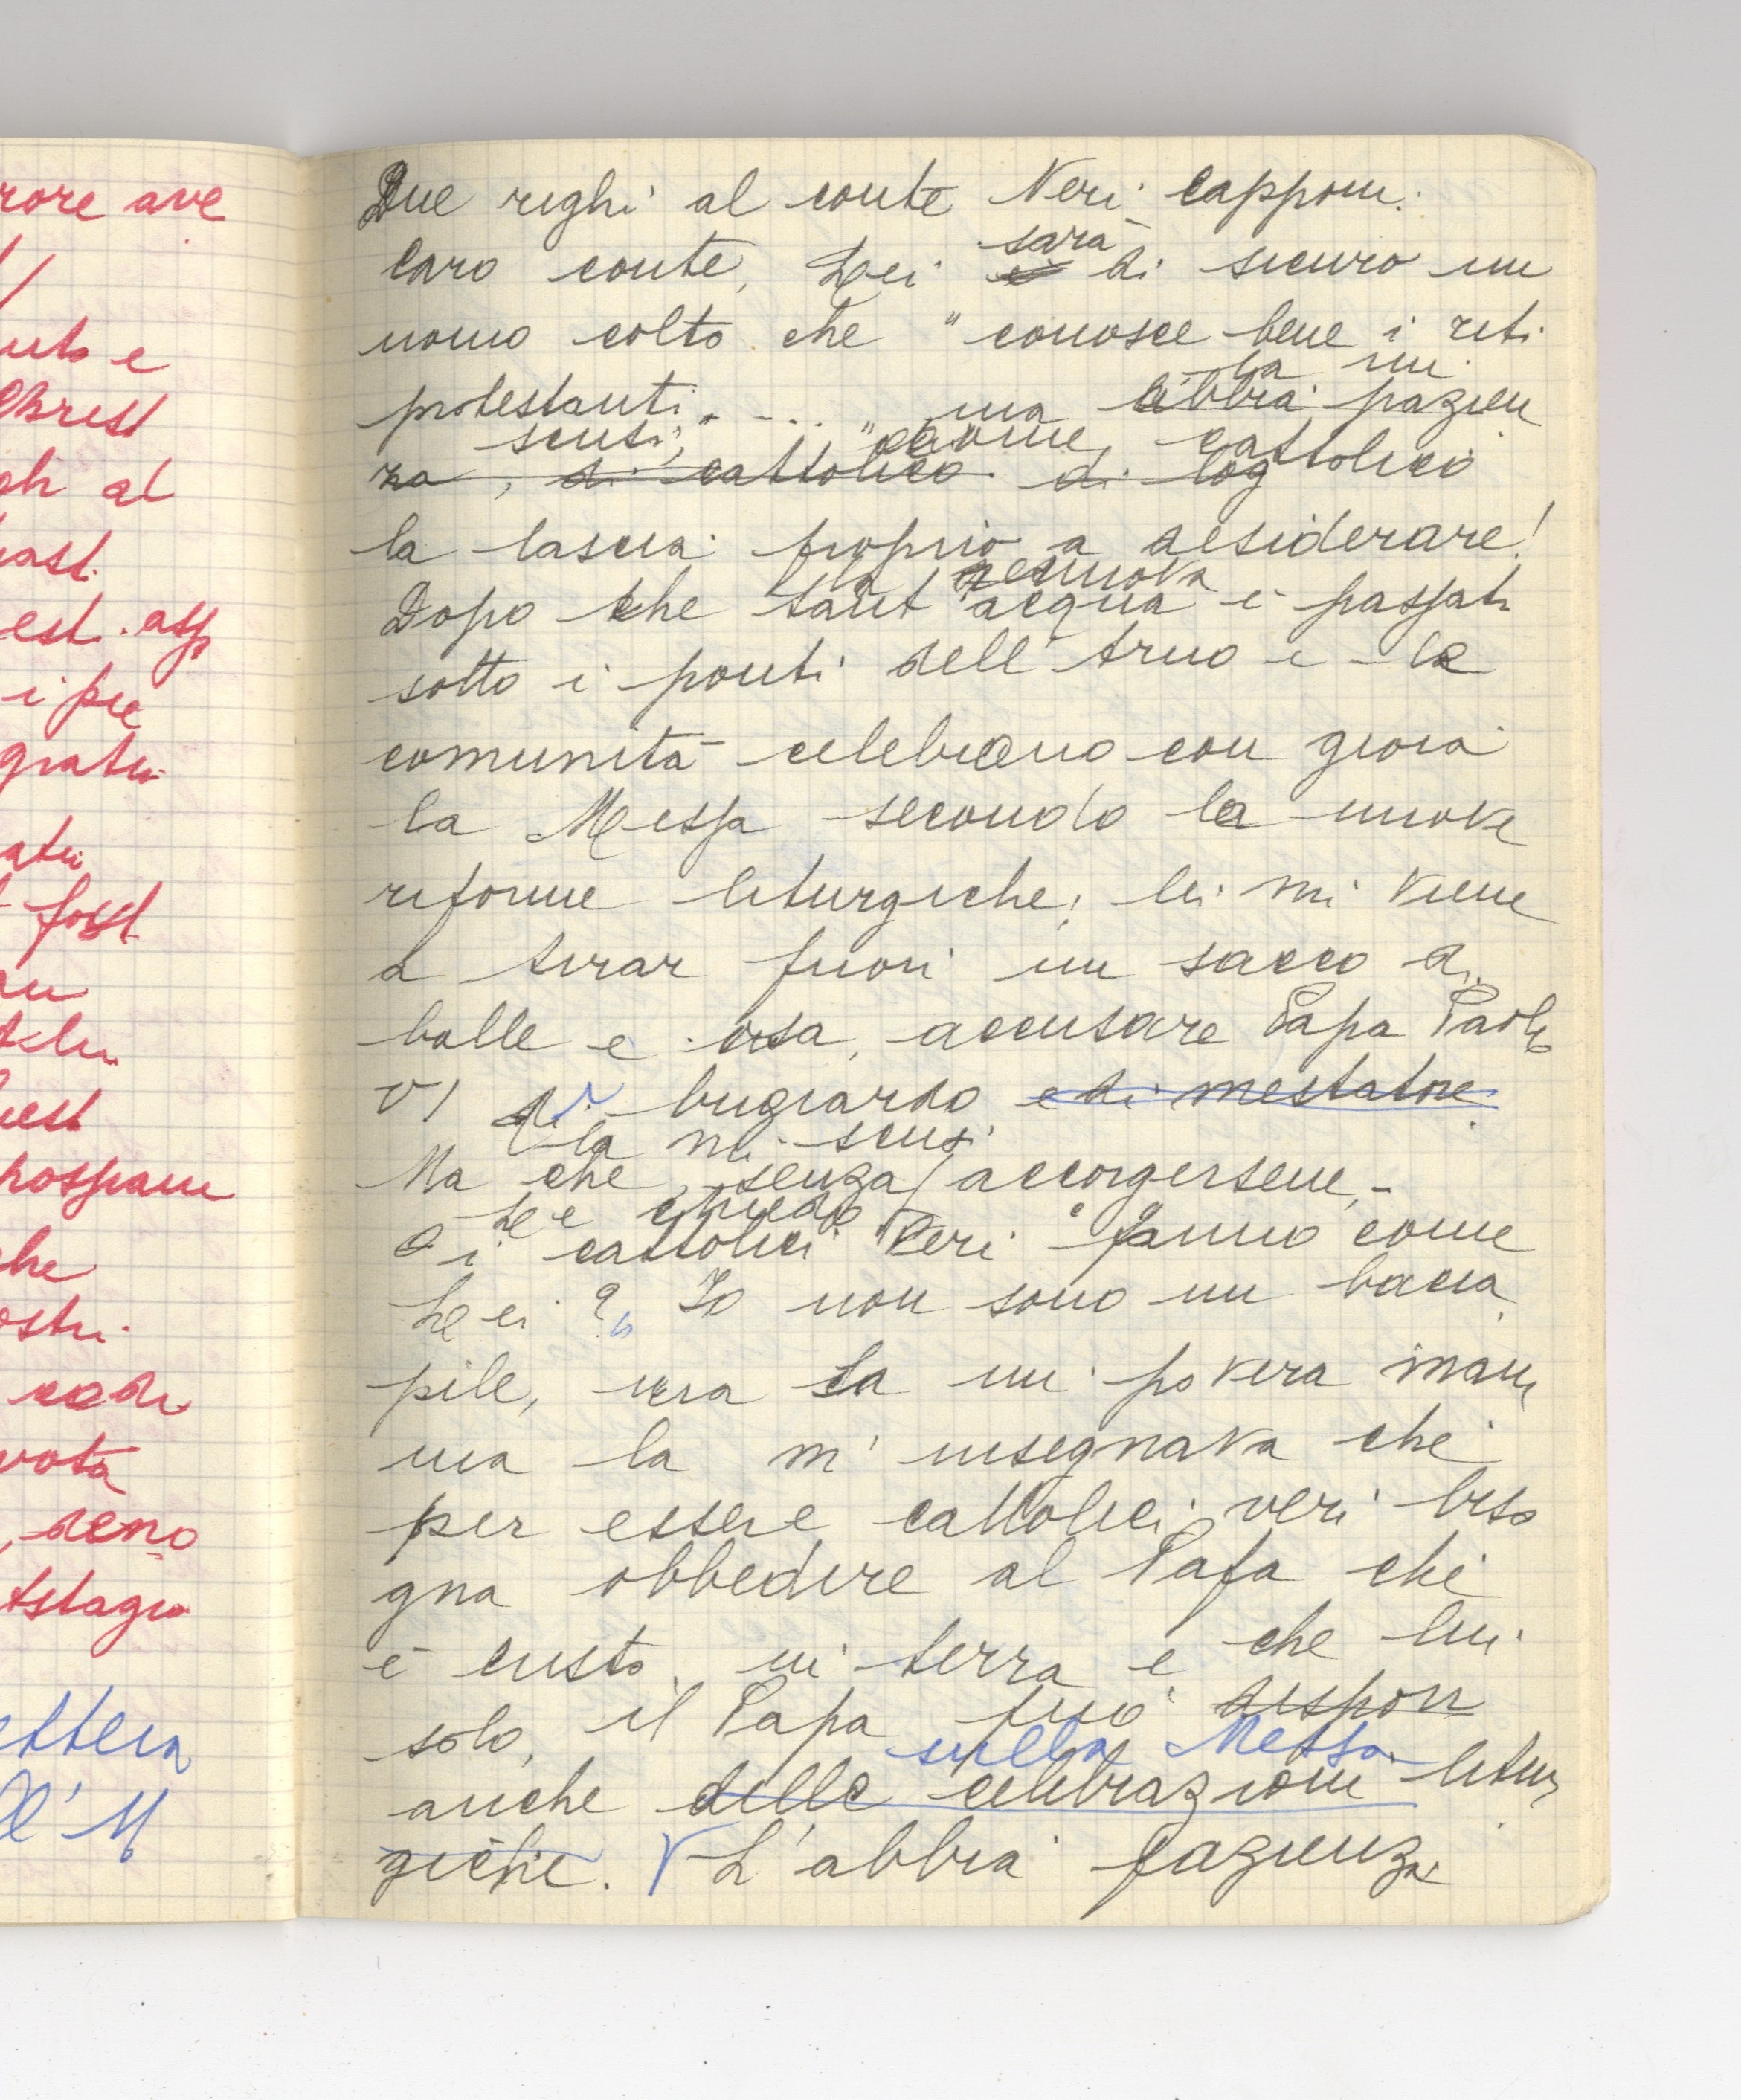 rore ave
uto e
Christ
gli al
ast.
est. asp
i pre
gratu
atu
foss
au
hest
possiam
che
ostri
vota
, seno
ettera
ll' M
Due righi al conte Neri Capponi:
sarà
Caro conte, Lei è di sicuro un
uomo colto che "conosce bene i riti
la mi
protestanti.... " ma abbia pazien
scusi, " come, cattolico
za, di cattolico di log
la lascia proprio a desiderare!
nuova
Dopo che tant'acqua è passata
sotto i ponti dell'Arno e le
comunità celebrano con gioia
la Messa secondo la nuove
riforme liturgiche; lei mi viene
a tirar fuori un sacco di
balle e osa, accusare Papa Paolo
VI di bugiardo e di mestatore.
la mi scusi
Ma che, senza accorgersene,
Le chiedo
O i cattolici "veri" fanno come
Lei? Io non sono un bacia
pile, ma la mi povera mam
ma la m'insegnava che
per essere cattolici veri biso
gna obbedire al Papa che
è Cristo in terra e che lui
solo, il Papa può dispon
sulla Messa
anche delle celebrazioni litur
giche. L'abbia pazienza